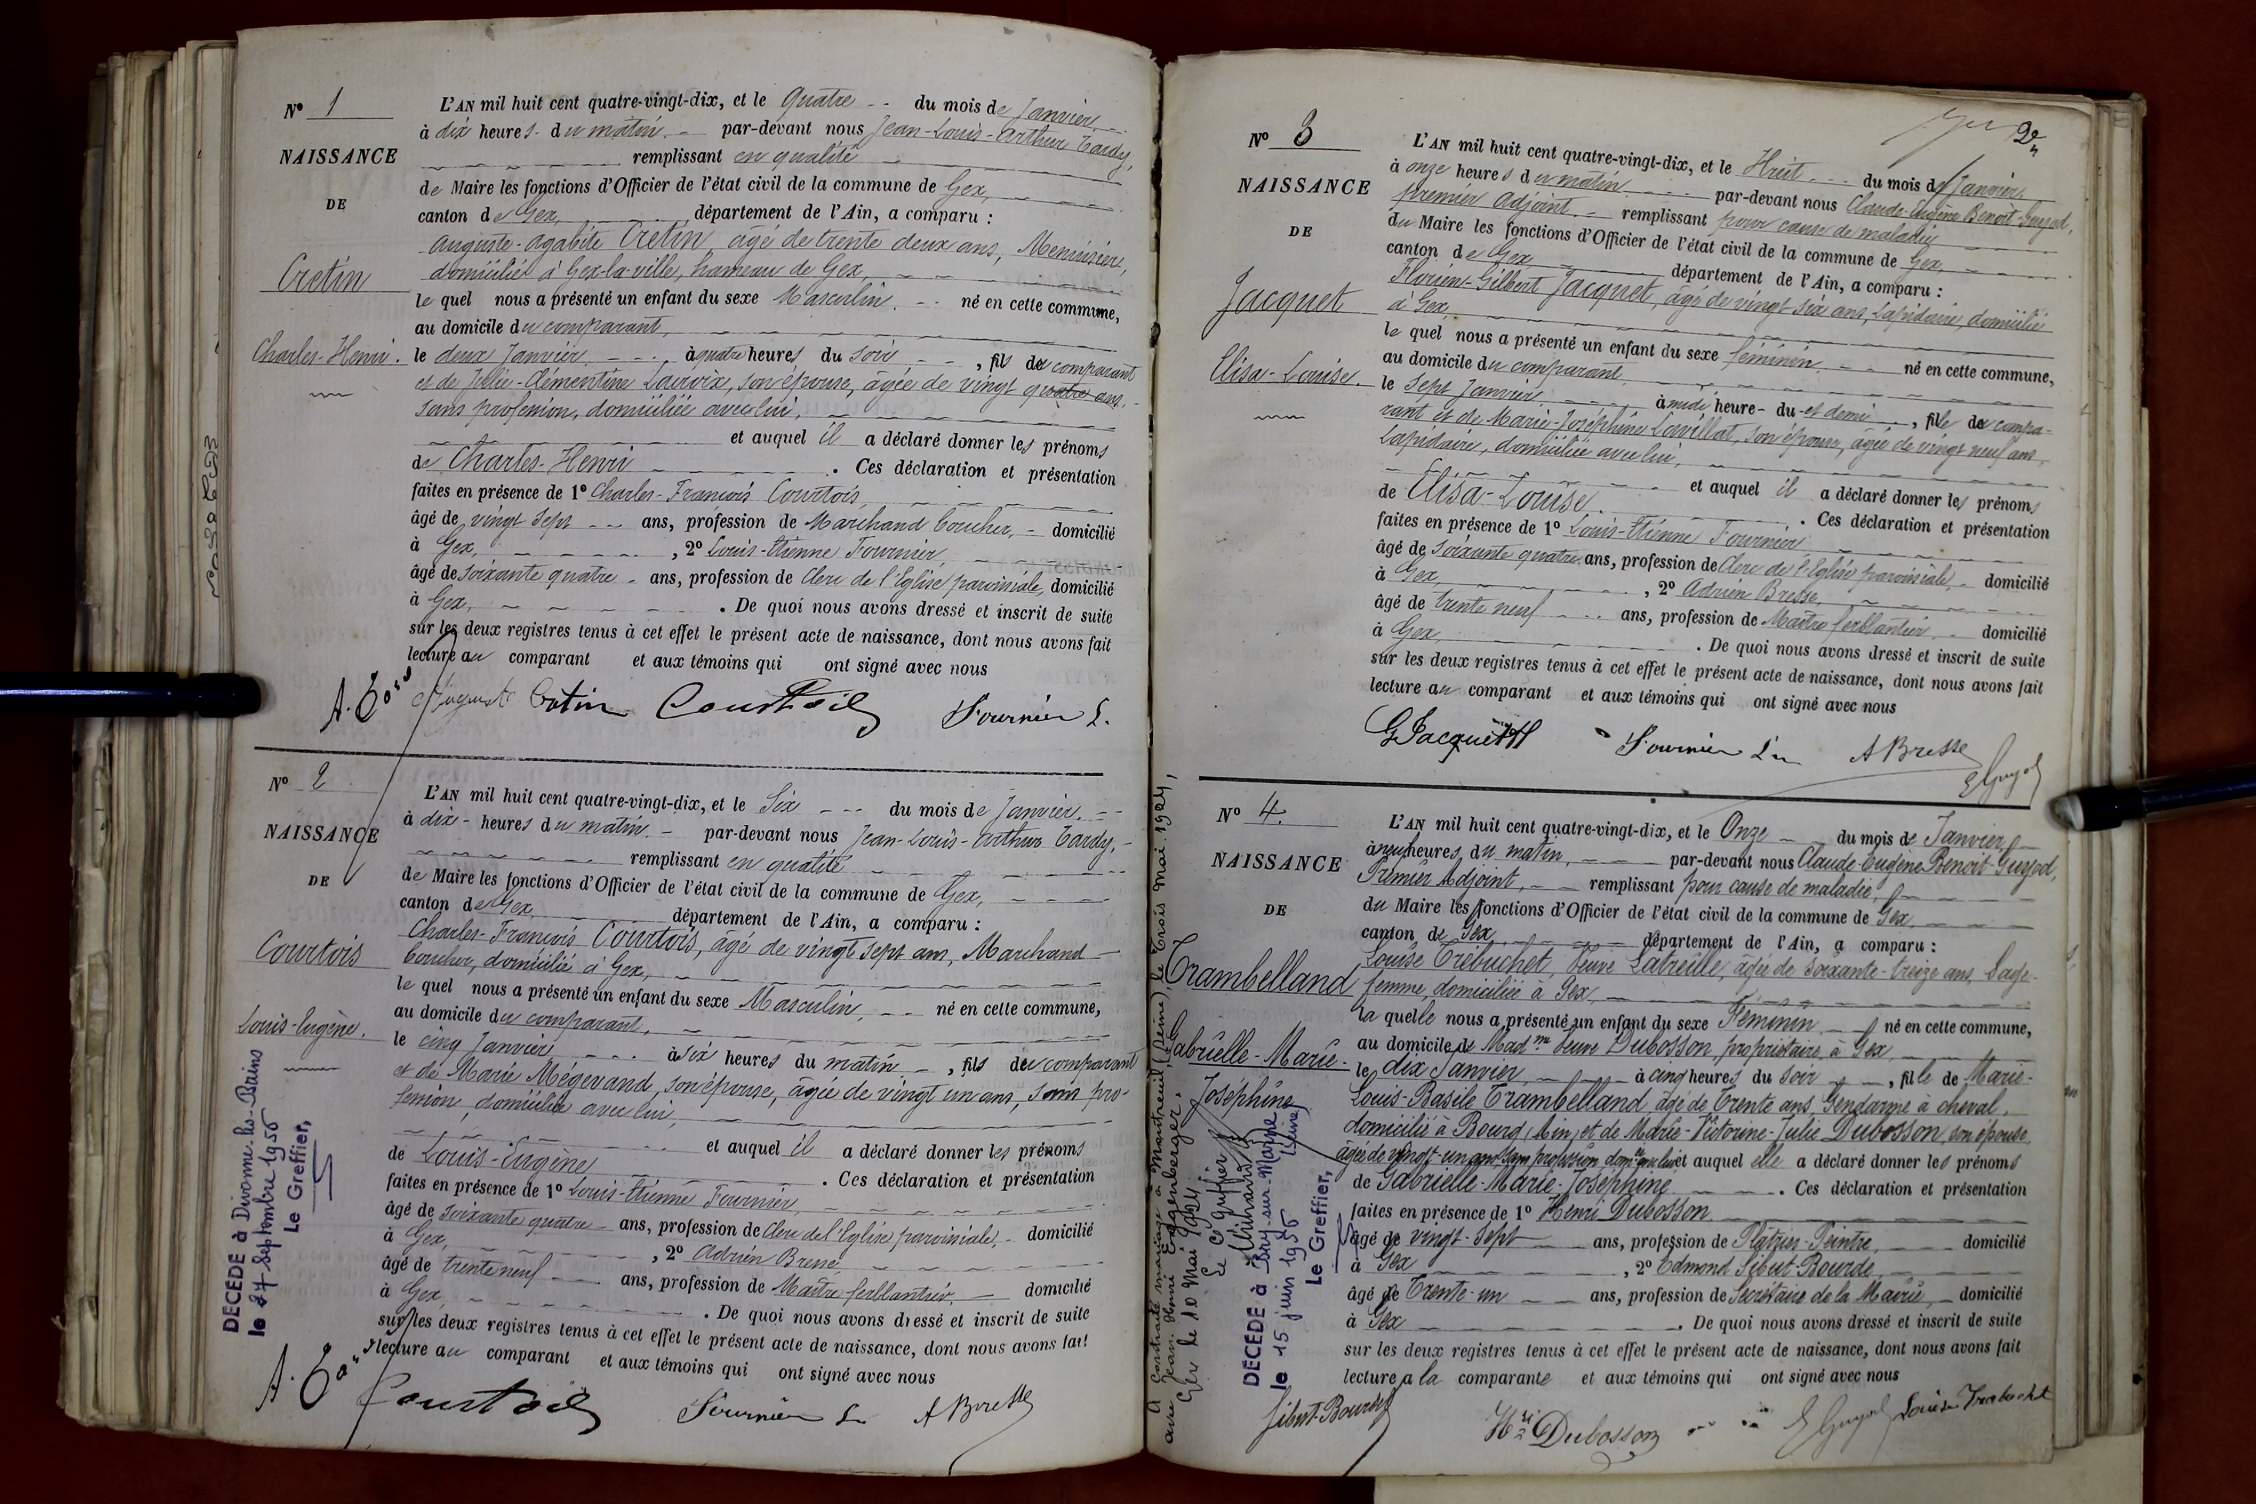 N° 1
NAISSANCE
DE
Cretin
Charles-Henri.
L'AN mil huit cent quatre-vingt-dix, et le Quatre du mois de Janvier,
à dix heures du matin. par-devant nous Jean-Louis-Arthur Tardy,
remplissant en qualité
de Maire les fonctions d'Officier de l'état civil de la commune de Gex,
canton de Gex, département de l'Ain, a comparu :
Auguste-Agabite Cretin, âgé de trente deux ans, Menuisier,
domicilié à Gex-la-ville, hameau de Gex,
le quel nous a présenté un enfant du sexe Masculin. né en cette commune,
au domicile du comparant,
le deux Janvier à quatre heures du soir, fils du comparant
et de Julie-Clémentine Lacroix, son épouse, âgée de vingt quatre ans,
sans profession, domiciliée avec lui,
et auquel il a déclaré donner les prénoms
de Charles-Henri. Ces déclaration et présentation
faites en présence de 1° Charles-François Courtois
âgé de vingt sept ans, profession de Marchand boucher, domicilié
à Gex, , 2° Louis-Etienne Fournier
âgé de soixante quatre ans, profession de Clerc de l'Eglise paroissiale, domicilié
à Gex, . De quoi nous avons dressé et inscrit de suite
sur les deux registres tenus à cet effet le présent acte de naissance, dont nous avons fait
lecture au comparant et aux témoins qui ont signé avec nous
Auguste Cretin Courtois Fournier L.
N° 2
NAISSANCE
DE
Courtois
Louis-Eugène.
DÉCÉDÉ à Divonne-les-Bains
le 27 Septembre 1956
Le Greffier,
L'AN mil huit cent quatre-vingt-dix, et le Six du mois de Janvier.
à dix heures du matin. par-devant nous Jean-Louis-Arthur Tardy,
remplissant en qualité
de Maire les fonctions d'Officier de l'état civil de la commune de Gex,
canton de Gex département de l'Ain, a comparu :
Charles-François Courtois, âgé de vingt sept ans, Marchand
boucher, domicilié à Gex,
le quel nous a présenté un enfant du sexe Masculin, né en cette commune,
au domicile du comparant,
le cinq Janvier à six heures du matin, fils du comparant
et de Marie Mégevand, son épouse, âgée de vingt un ans, sans pro-
fession, domiciliée avec lui,
et auquel il a déclaré donner les prénoms
de Louis-Eugène. Ces déclaration et présentation
faites en présence de 1° Louis-Etienne Fournier,
âgé de soixante quatre ans, profession de Clerc de l'Eglise paroissiale, domicilié
à Gex, , 2° Adrien Bresse
âgé de trente neuf ans, profession de Maître ferblantier, domicilié
à Gex, . De quoi nous avons dressé et inscrit de suite
sur les deux registres tenus à cet effet le présent acte de naissance, dont nous avons fait
lecture au comparant et aux témoins qui ont signé avec nous
Courtois Fournier L. A Bresse
2e
N° 3
NAISSANCE
DE
Jacquet
Elisa-Louise.
L'AN mil huit cent quatre-vingt-dix, et le Huit du mois de Janvier
à onze heures du matin par-devant nous Claude-Eugène Benoît-Guyod,
premier adjoint. remplissant pour cause de maladie
du Maire les fonctions d'Officier de l'état civil de la commune de Gex,
canton de Gex département de l'Ain, a comparu :
Florien-Gilbert Jacquet, âgé de vingt six ans, Lapidaire, domicilié
à Gex,
le quel nous a présenté un enfant du sexe féminin né en cette commune,
au domicile du comparant
le sept Janvier à midi heure du et demi, fille du compa-
rant et de Marie-Joséphine Lavillat, son épouse, âgée de vingt neuf ans,
Lapidaire, domiciliée avec lui,
et auquel il a déclaré donner les prénoms
de Elisa-Louise. Ces déclaration et présentation
faites en présence de 1° Louis-Etienne Fournier
âgé de soixante quatre ans, profession de Clerc de l'Eglise paroissiale, domicilié
à Gex, , 2° Adrien Bresse,
âgé de trente neuf ans, profession de Maître ferblantier domicilié
à Gex, . De quoi nous avons dressé et inscrit de suite
sur les deux registres tenus à cet effet le présent acte de naissance, dont nous avons fait
lecture au comparant et aux témoins qui ont signé avec nous
G Jacquet Fournier L. A Bresse
E Guyod
N° 4.
NAISSANCE
DE
Trambelland
Gabrielle-Marie-
Joséphine
A contracté mariage à Montreuil (Seine), le Trois Mai 1924,
avec Jean Henri Eggenberger.
Gex le 10 Mai 1924
Le Greffier
DÉCÉDÉ à Bry-sur-Marne
le 15 juin 1956 (Seine)
Le Greffier,
L'AN mil huit cent quatre-vingt-dix, et le Onze du mois de Janvier
à neuf heures du matin, par-devant nous Claude-Eugène Benoit-Guyod,
Premier Adjoint, remplissant pour cause de maladie,
du Maire les fonctions d'Officier de l'état civil de la commune de Gex,
canton de Gex, département de l'Ain, a comparu :
Louise Trébuchet, Veuve Latreille, âgée de soixante-treize ans, Sage-
femme, domiciliée à Gex,
la quelle nous a présenté un enfant du sexe Féminin né en cette commune,
au domicile de Madme Veuve Dubosson, propriétaire à Gex
le dix Janvier, à cinq heures du soir, fille de Marie-
Louis-Basile Trambelland, âgé de Trente ans, Gendarme à cheval,
domicilié à Bourg (Ain) et de Marie-Victorine-Julie Dubosson, son épouse,
âgée de vingt-un ans, sans profession, domiée avec lui et auquel elle a déclaré donner les prénoms
de Gabrielle-Marie-Joséphine. Ces déclaration et présentation
faites en présence de 1° Henri Dubosson
âgé de vingt-sept ans, profession de Plâtrier-Peintre, domicilié
à Gex , 2° Edmond Sibut-Bourde,
âgé de Trente-un ans, profession de Secrétaire de la Mairie, domicilié
à Gex. De quoi nous avons dressé et inscrit de suite
sur les deux registres tenus à cet effet le présent acte de naissance, dont nous avons fait
lecture a la comparante et aux témoins qui ont signé avec nous
Sibut-Bourde Hri Dubosson E Guyod Louise Trabuchet